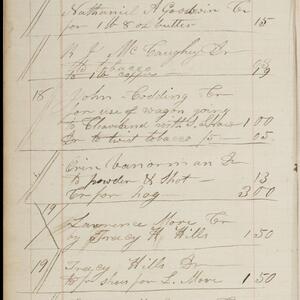 Nathaniel A Goodwin Cr
for 1 lb 8 oz butter 15
R J McCaughey Dr
to tobacco 08
to 1 lb coffee 19
18 John Codding Cr
for use of wagon going
to Cleaveland with 1 00
Dr to twist tobacco 15 05
Orin Vanorman Dr
to powder & Shot 13
Cr for hog 3 00
19 Lawrence More Cr
by Tracy H Hills 1 50
19 Tracy Hills Dr
to pr shus for L. More 1 50